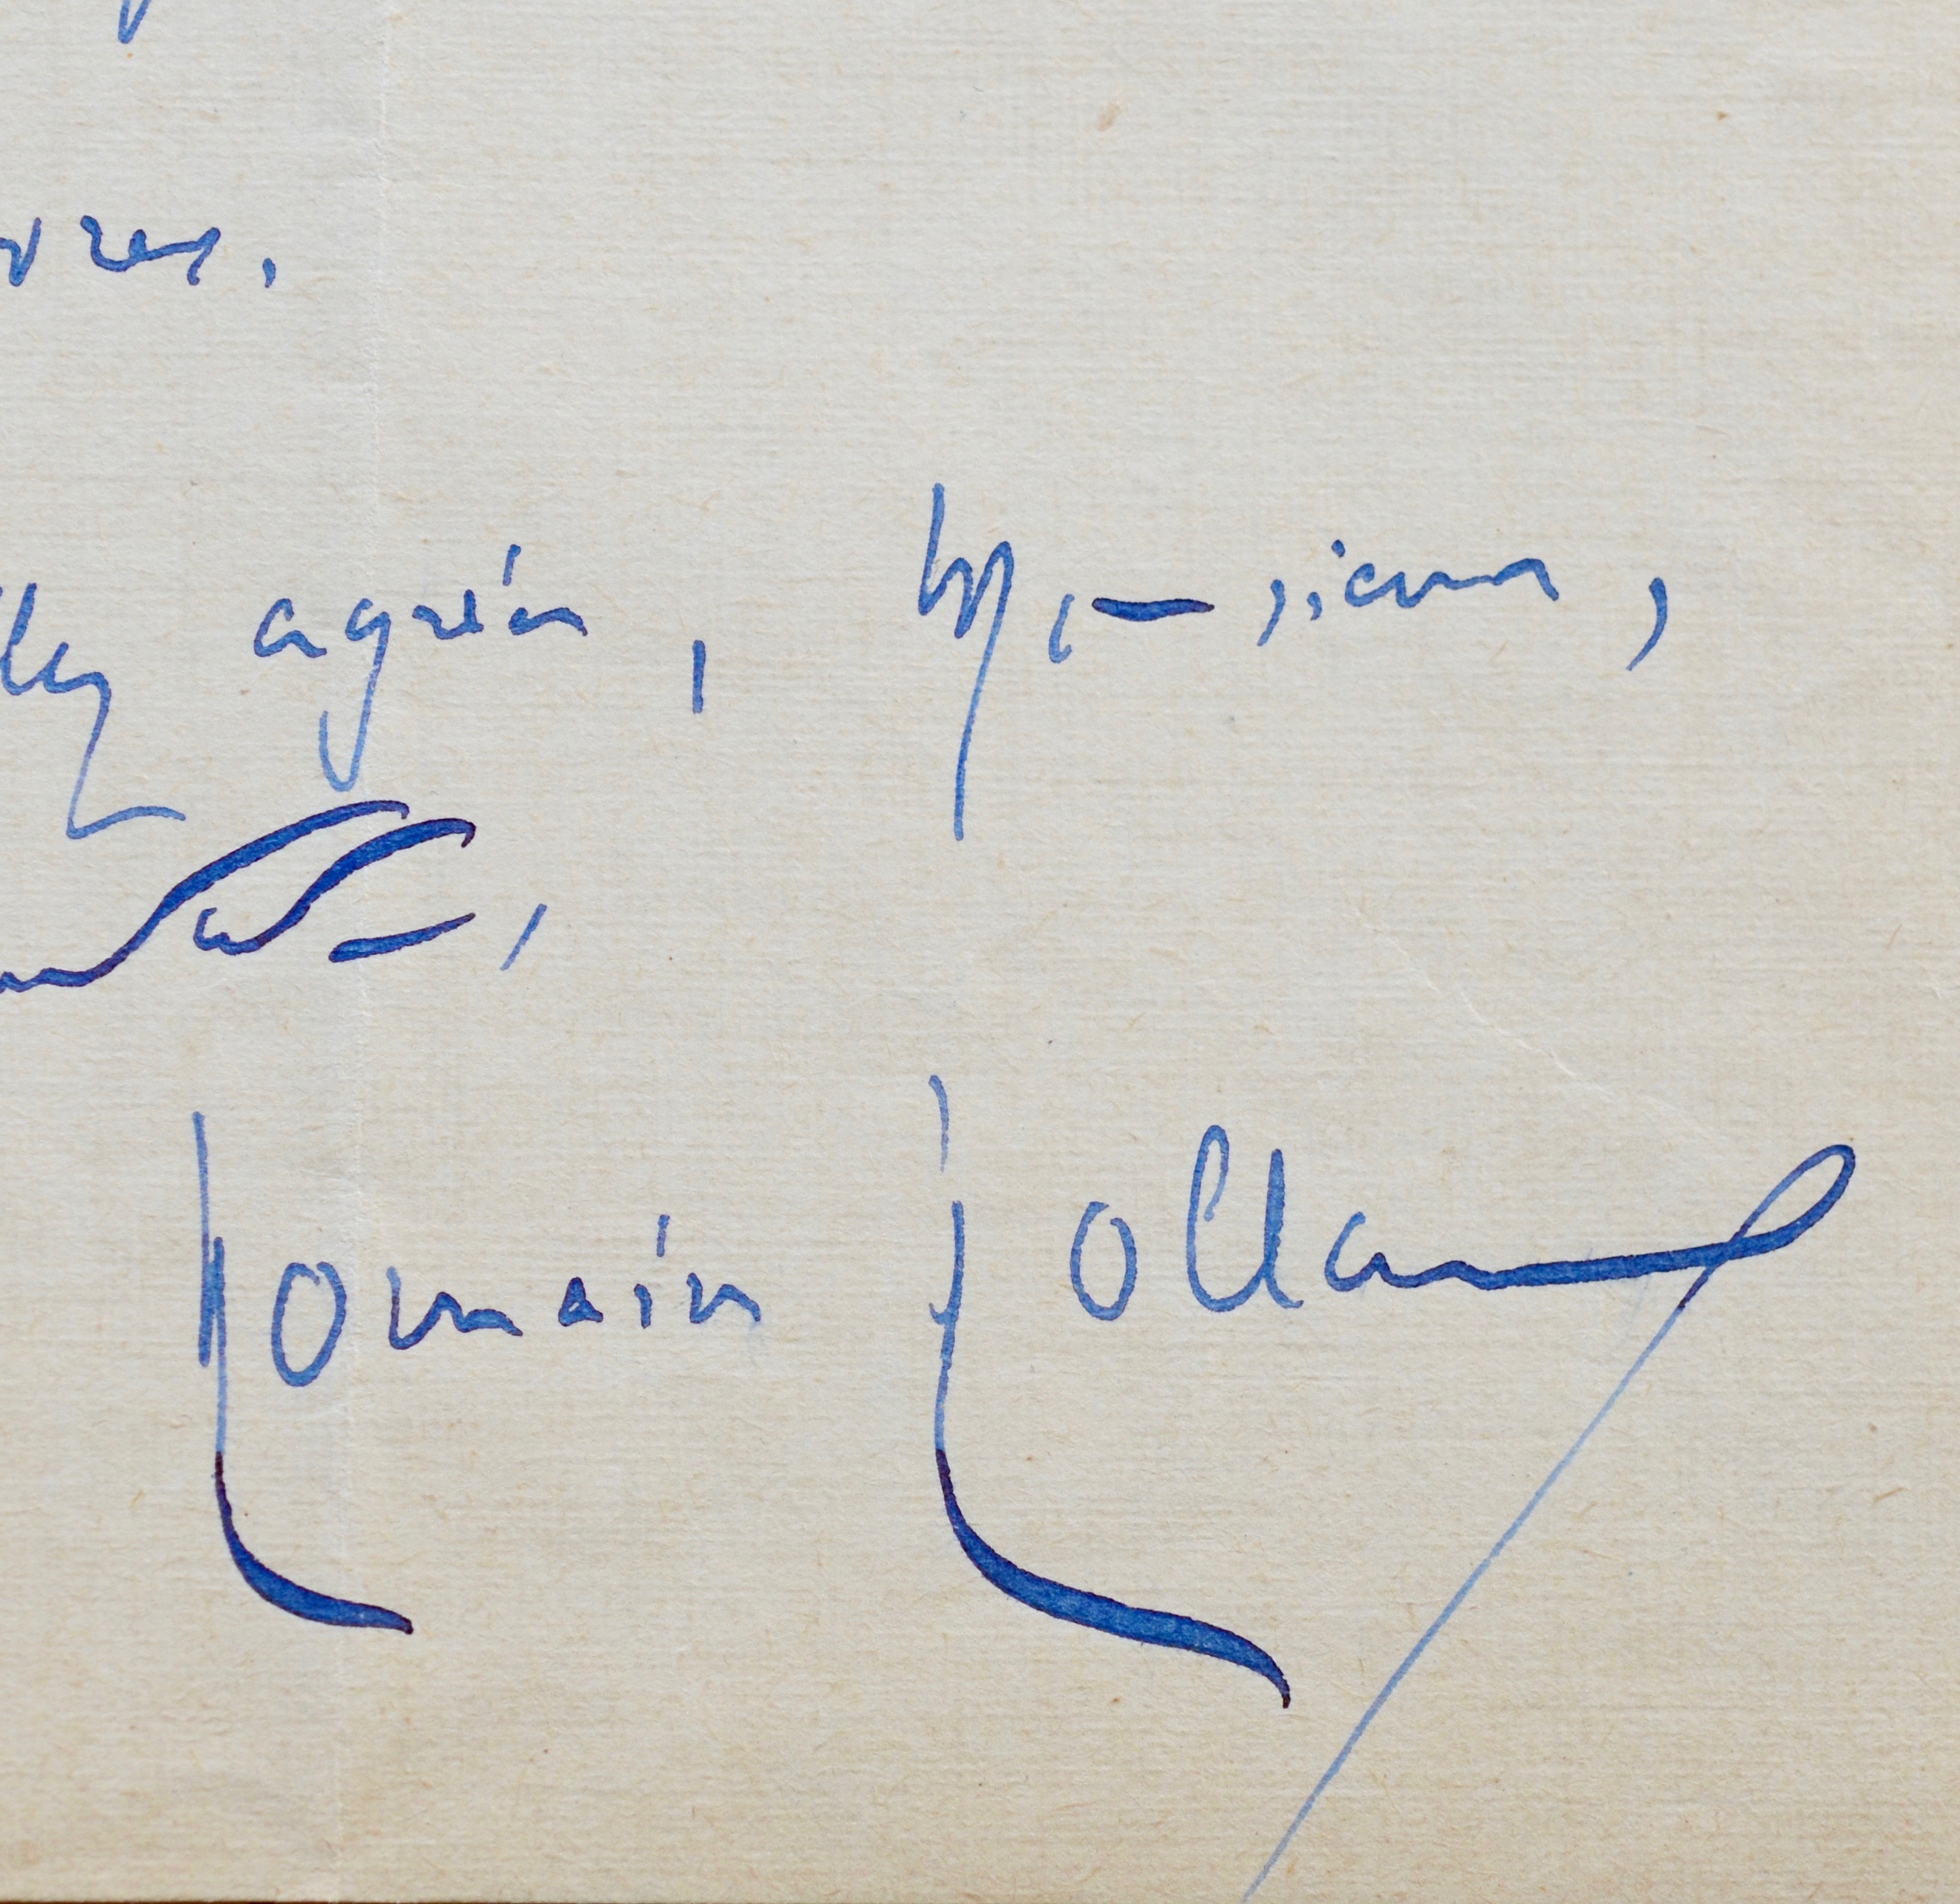 vres.
llez agréer, Monsieur,
Romain Rolland